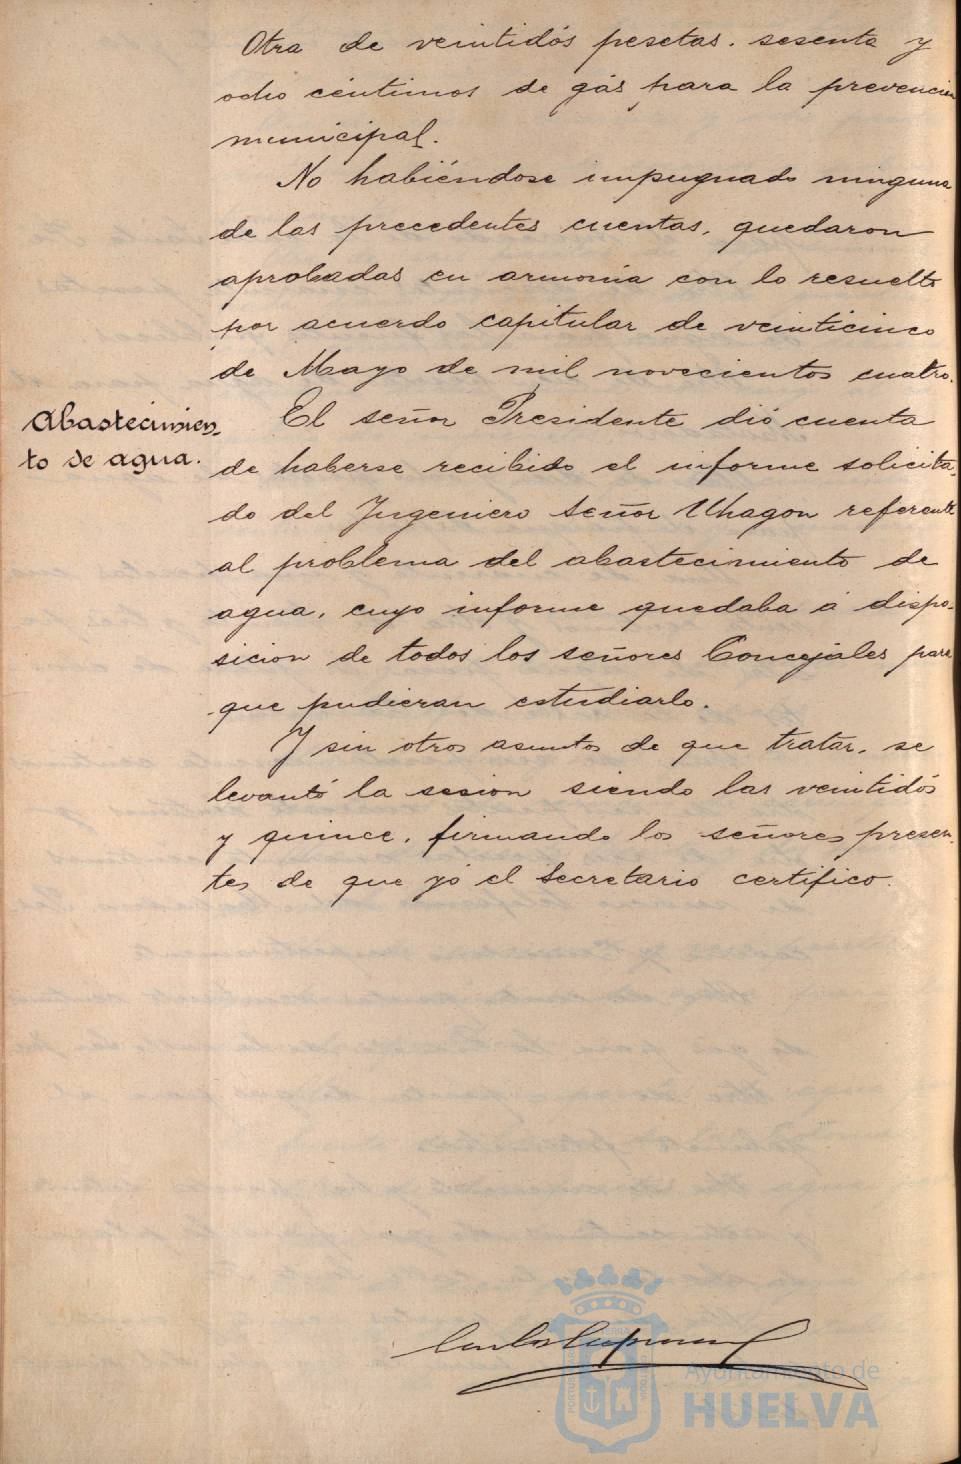 Otra de veintidós pesetas. sesenta y
ocho céntimos de gás para la prevención
municipal.
No habiéndose impugnado ninguna
de las precedentes cuentas, quedaron
aprobadas en armonía con lo resuelto
por acuerdo capitular de veinticinco
de Mayo de mil novecientos cuatro.
Abastecimien-
to de agua.
El señor Presidente dió cuenta
de haberse recibido el informe solicita-
do del Ingeniero Señor Uhagon referente
al problema del abastecimiento de
agua, cuyo informe quedaba á dispo-
sicion de todos los señores Concejales para
que pudieran estudiarlo.
Y sin otros asuntos de que tratar, se
levantó la sesion siendo las veintidós
y quince, firmando los señores presen-
tes de que yó el Secretario certifico.
Ayuntamiento de
HUELVA